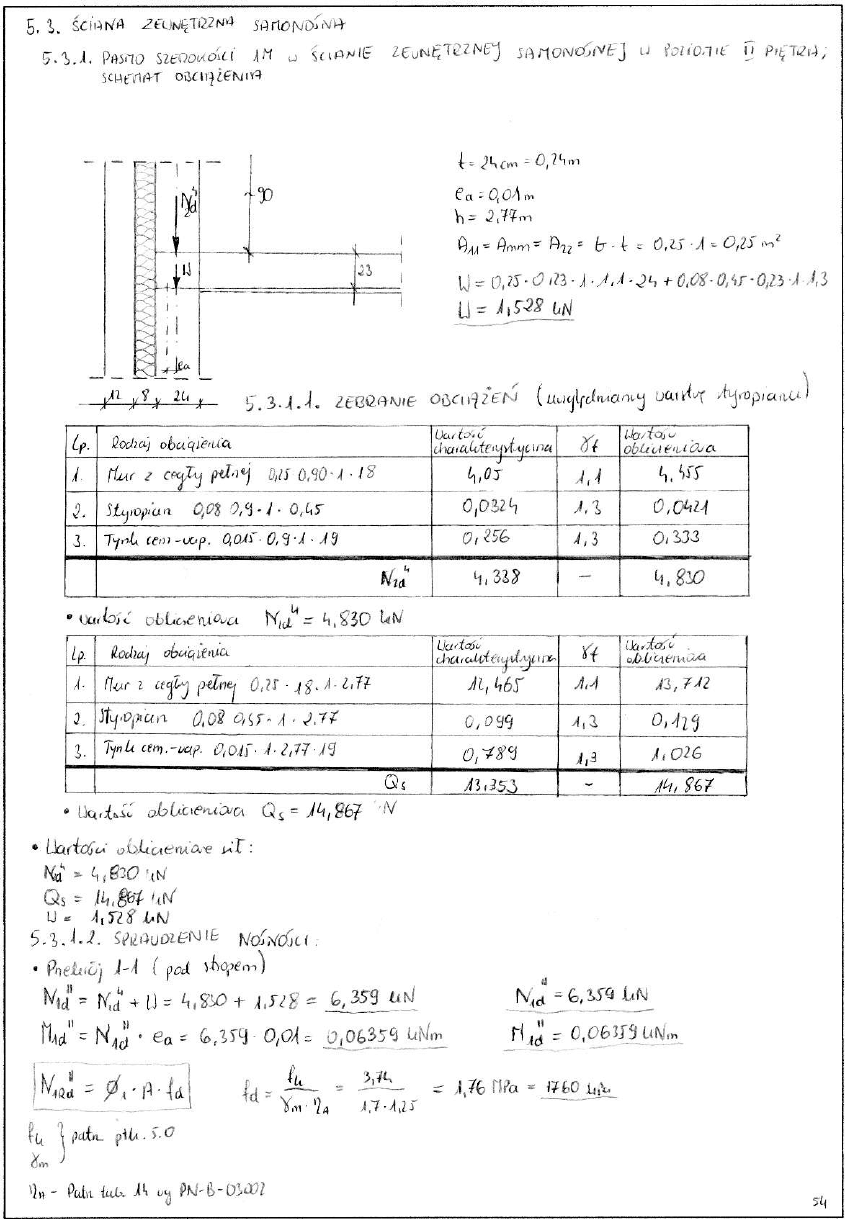 5.3. ŚCIANA ZEWNĘTRZNA SAMONOŚNA
5.3.1. PASMO SZEROKOŚCI 1M W ŚCIANIE ZEWNĘTRZNEJ SAMONOŚNEJ W POZIOMIE II PIĘTRA;
SCHEMAT OBCIĄŻENIA
t = 24cm = 0,24m
ea = 0,01m
h = 2,77m
A11 = Amm = A22 = b · t = 0,25 · 1 = 0,25 m²
W = 0,25 · 0,23 · 1 · 1,1 · 24 + 0,08 · 0,45 · 0,23 · 1 · 1,3
W = 1,528 kN
90
23
W
ea
12 8 24
5.3.1.1. ZEBRANIE OBCIĄŻEŃ (uwzględniamy warstwę styropianu)
Lp. Rodzaj obciążenia Wartość charakterystyczna γf Wartość obliczeniowa
1. Mur z cegły pełnej 0,25 0,90 · 1 · 18 4,05 1,1 4,455
2. Styropian 0,08 0,9 · 1 · 0,45 0,0324 1,3 0,0421
3. Tynk cem-wap. 0,015 · 0,9 · 1 · 19 0,256 1,3 0,333
4,338 – 4,830
• wartość obliczeniowa N1d⁴ = 4,830 kN
Lp. Rodzaj obciążenia Wartość charakterystyczna γf Wartość obliczeniowa
1. Mur z cegły pełnej 0,25 · 18 · 1 · 2,77 12,465 1,1 13,712
2. Styropian 0,08 0,45 · 1 · 2,77 0,099 1,3 0,129
3. Tynk cem.-wap. 0,015 · 1 · 2,77 · 19 0,789 1,3 1,026
Qs 13,353 – 14,867
• Wartość obliczeniowa Qs = 14,867 kN
• Wartości obliczeniowe sił:
Nd⁴ = 4,830 kN
Qs = 14,867 kN
W = 1,528 kN
5.3.1.2. SPRAWDZENIE NOŚNOŚCI:
• Przekrój 1-1 (pod stropem)
N1d" = N1d⁴ + W = 4,830 + 1,528 = 6,359 kN N1d" = 6,359 kN
M1d" = N1d" · ea = 6,359 · 0,01 = 0,06359 kNm M1d" = 0,06359 kNm
N1Rd" = Ø1 · A · fd fd = fk / γm · ηA = 3,74 / 1,7 · 1,25 = 1,76 MPa = 1760 kPa
fk } patrz pkt. 5.0
γm
ηA – Patrz tab. 14 wg PN-B-03002
54